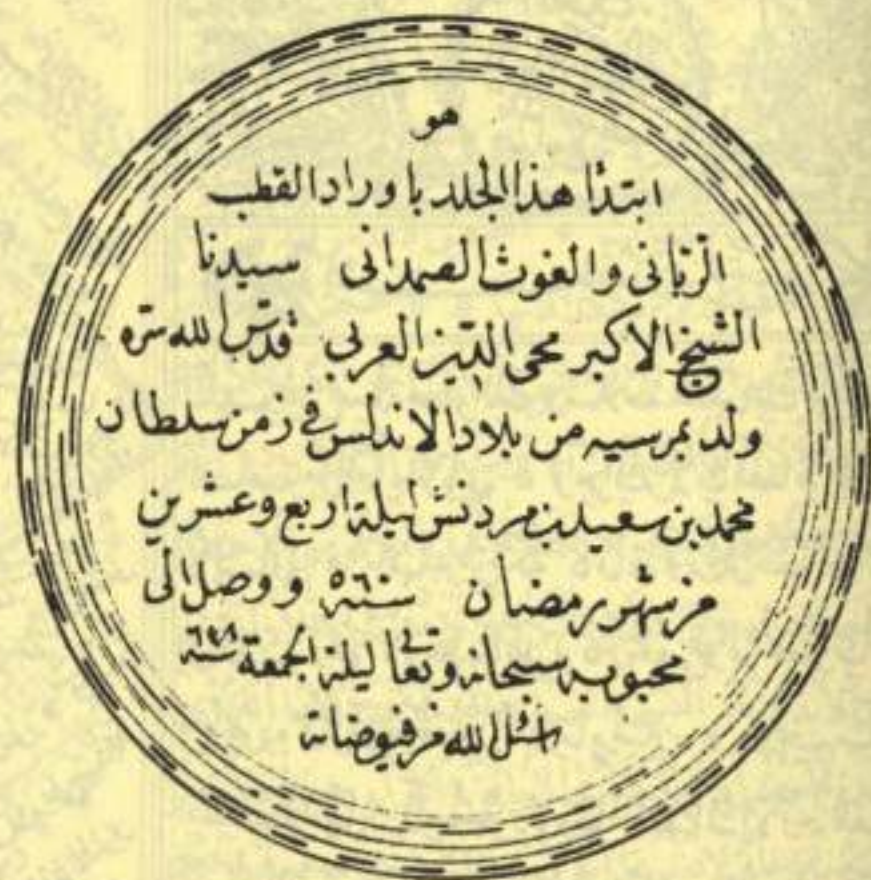 هو
ابتدأ هذا المجلد باوراد القطب
الربانى والغوث الصمدانى سيدنا
الشيخ الاكبر محى الدين العربى قدس الله سره
ولد بمرسيه من بلاد الاندلس فى زمن سلطان
محمد بن سعيد بن مردنش ليلة اربع وعشرين
من شهر رمضان سنة ٥٦٠ ووصل الى
محبوبه سبحانه وتعالى ليلة الجمعة سنة
اسئل الله من فيوضاته